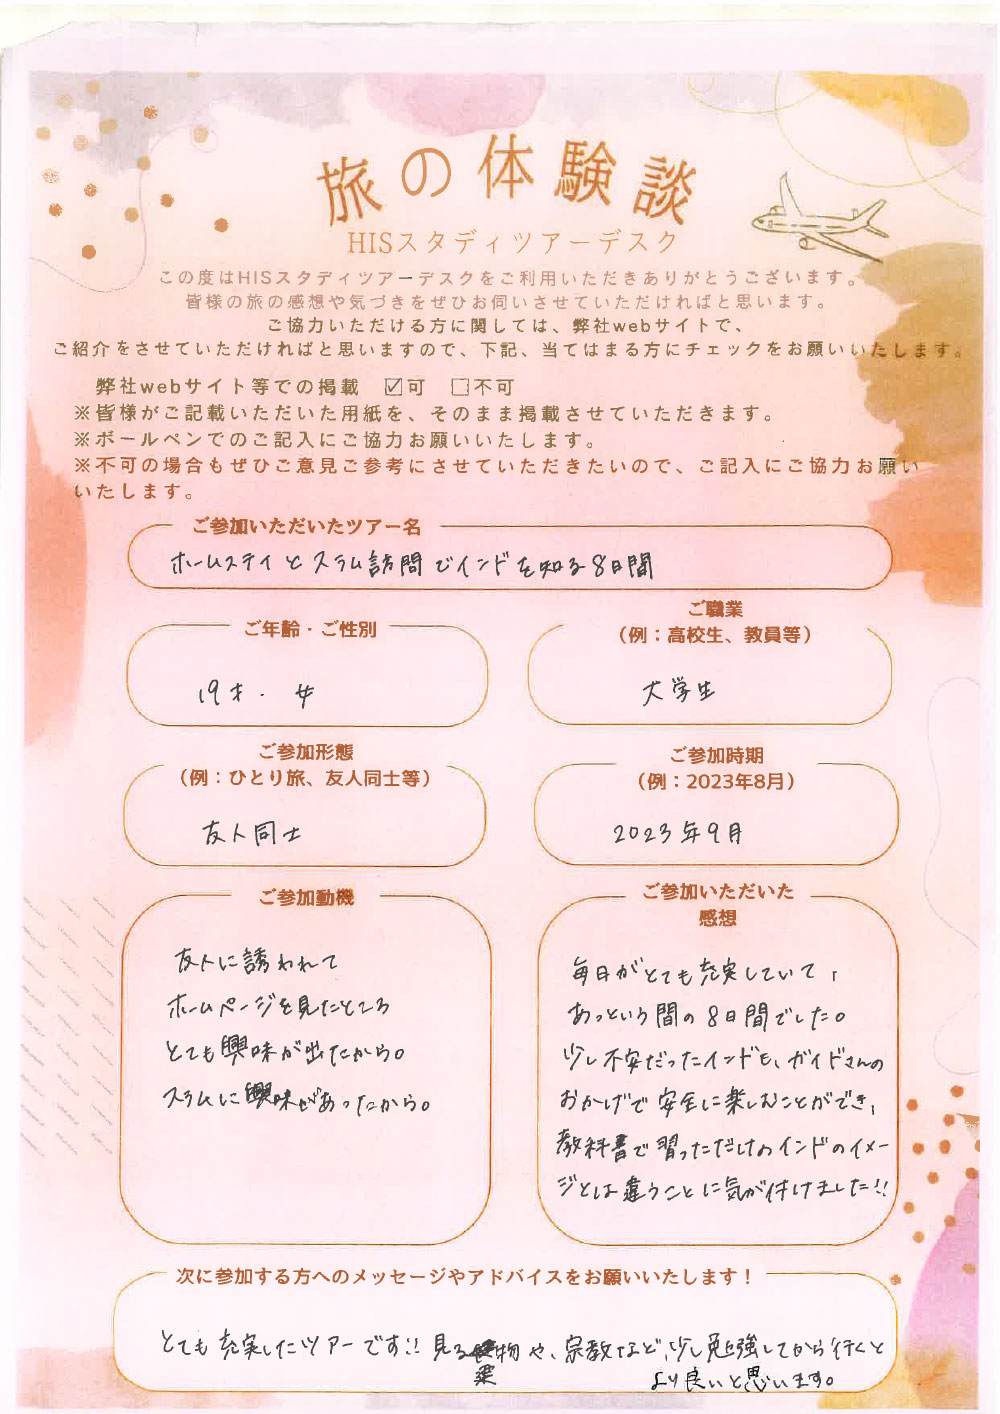 旅の体験談
HISスタディツアーデスク
この度はHISスタディツアーデスクをご利用いただきありがとうございます。
皆様の旅の感想や気づきをぜひお伺いさせていただければと思います。
ご協力いただける方に関しては、弊社webサイトで、
ご紹介をさせていただければと思いますので、下記、当てはまる方にチェックをお願いいたします。
弊社webサイト等での掲載 ☑可 □不可
※皆様がご記載いただいた用紙を、そのまま掲載させていただきます。
※ボールペンでのご記入にご協力お願いいたします。
※不可の場合もぜひご意見ご参考にさせていただきたいので、ご記入にご協力お願い
いたします。
ご参加いただいたツアー名
ホームステイとスラム訪問でインドを知る8日間
ご年齢・ご性別
19才・女
ご職業
（例：高校生、教員等）
大学生
ご参加形態
（例：ひとり旅、友人同士等）
友人同士
ご参加時期
（例：2023年8月）
2023年9月
ご参加動機
友人に誘われて
ホームページを見たところ
とても興味が出たから。
スラムに興味があったから。
ご参加いただいた
感想
毎日がとても充実していて、
あっという間の8日間でした。
少し不安だったインドも、ガイドさんの
おかげで安全に楽しむことができ、
教科書で習っただけのインドのイメー
ジとは違うことに気が付けました!!
次に参加する方へのメッセージやアドバイスをお願いいたします！
とても充実したツアーです!! 見る建物や、宗教など、少し勉強してから行くと
より良いと思います。